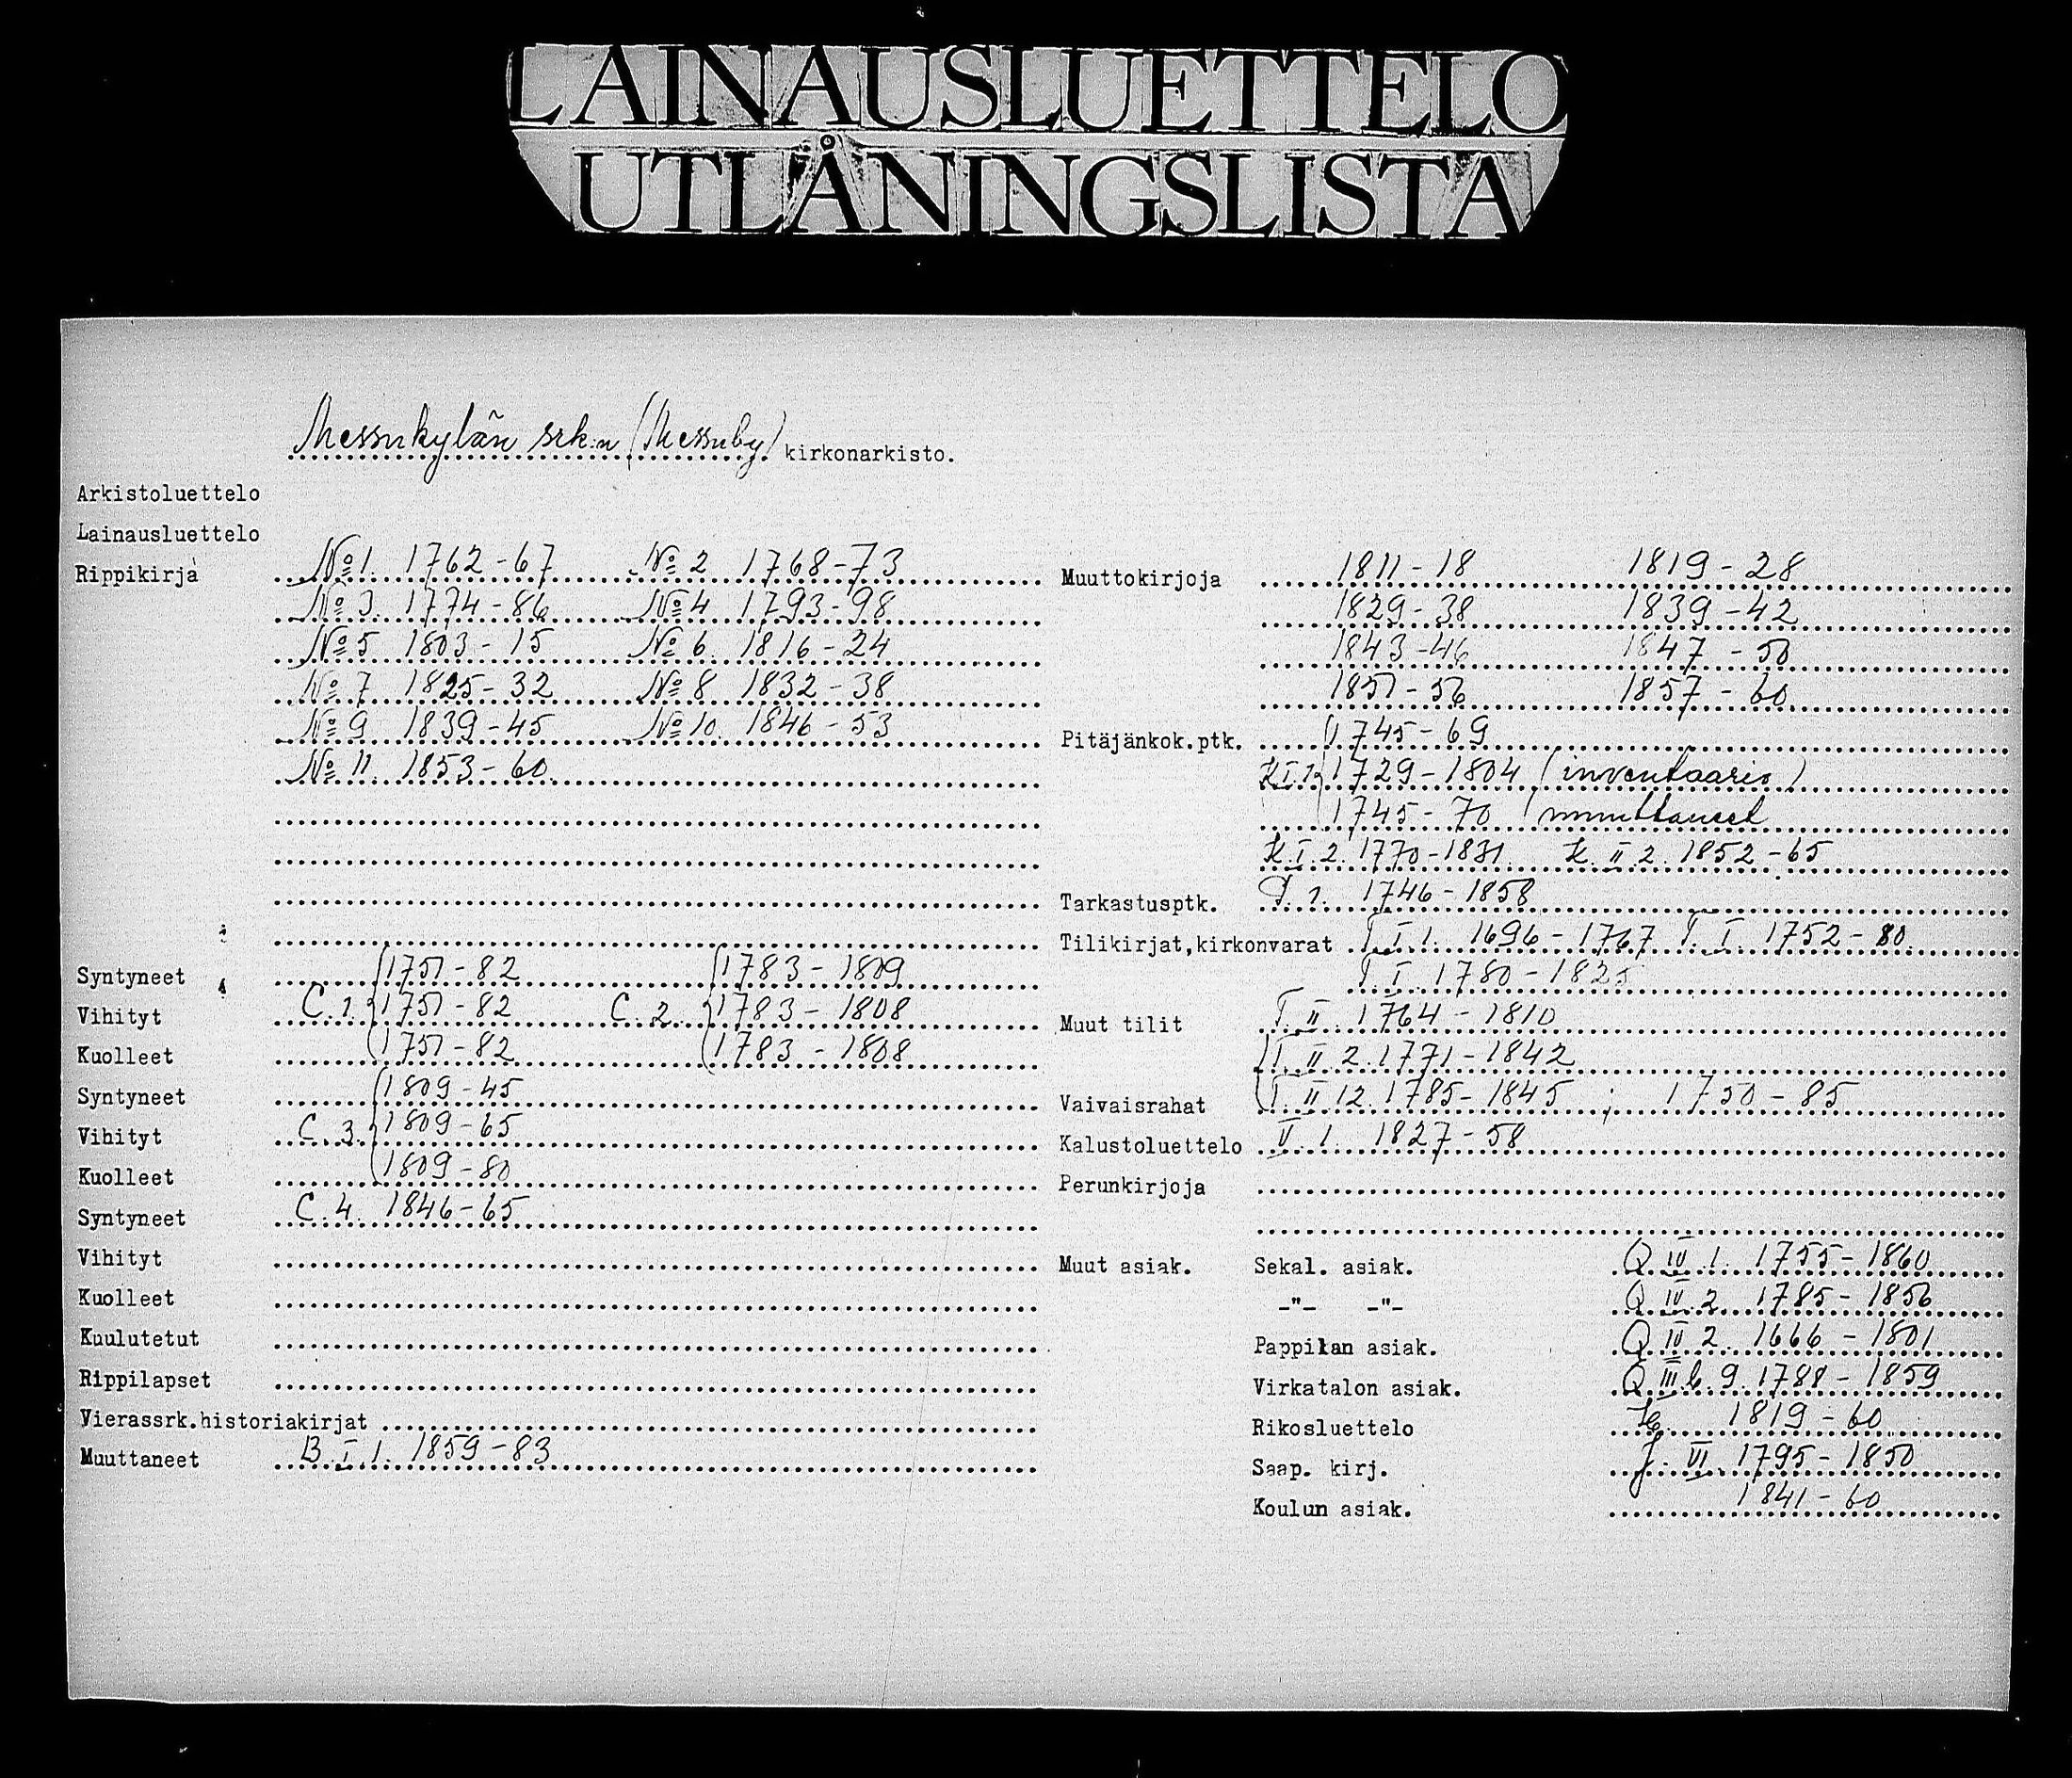 LAINAUSLUETTELO
UTLÅNINGSLISTA
Messukylän srk:n (Messuby) kirkonarkisto.
Arkistoluettelo
Lainausluettelo
Rippikirja No 1. 1762-67 No 2 1768-73
No 3. 1774-86 No 4 1793-98
No 5 1803-15 No 6 1816-24
No 7 1825-32 No 8 1832-38
No 9 1839-45 No 10. 1846-53
No 11. 1853-60
Syntyneet 1751-82 1783-1809
Vihityt C.1. 1751-82 C.2. 1783-1808
Kuolleet 1751-82 1783-1808
Syntyneet 1809-45
Vihityt C.3. 1809-65
Kuolleet 1809-80
Syntyneet C.4. 1846-65
Vihityt
Kuolleet
Kuulutetut
Rippilapset
Vierassrk.historiakirjat
Muuttaneet B.I.1. 1859-83
Muuttokirjoja 1811-18 1819-28
1829-38 1839-42
1843-46 1847-50
1851-56 1857-60
Pitäjänkok.ptk. 1745-69
K.I.1. 1729-1804 (inventaario)
1745-70 (muuttaneet
K.I.2. 1770-1831. K.II.2. 1852-65
Tarkastusptk. 1746-1858
Tilikirjat,kirkonvarat T.I.1. 1696-1767 T.I. 1752-80.
T.I. 1780-1825
Muut tilit T.II. 1764-1810
T.II.2. 1771-1842
Vaivaisrahat T.II.12. 1785-1845 ; 1750-85
Kalustoluettelo V.1. 1827-58
Perunkirjoja
Muut asiak. Sekal. asiak. Q.IV.1. 1755-1860
-"- -"- Q.IV.2. 1785-1856
Pappilan asiak. Q.IV.2. 1666-1801
Virkatalon asiak. Q.III.b.9. 1788-1859
Rikosluettelo 1819-60
Saap. kirj. J.VI. 1795-1850
Koulun asiak. 1841-60